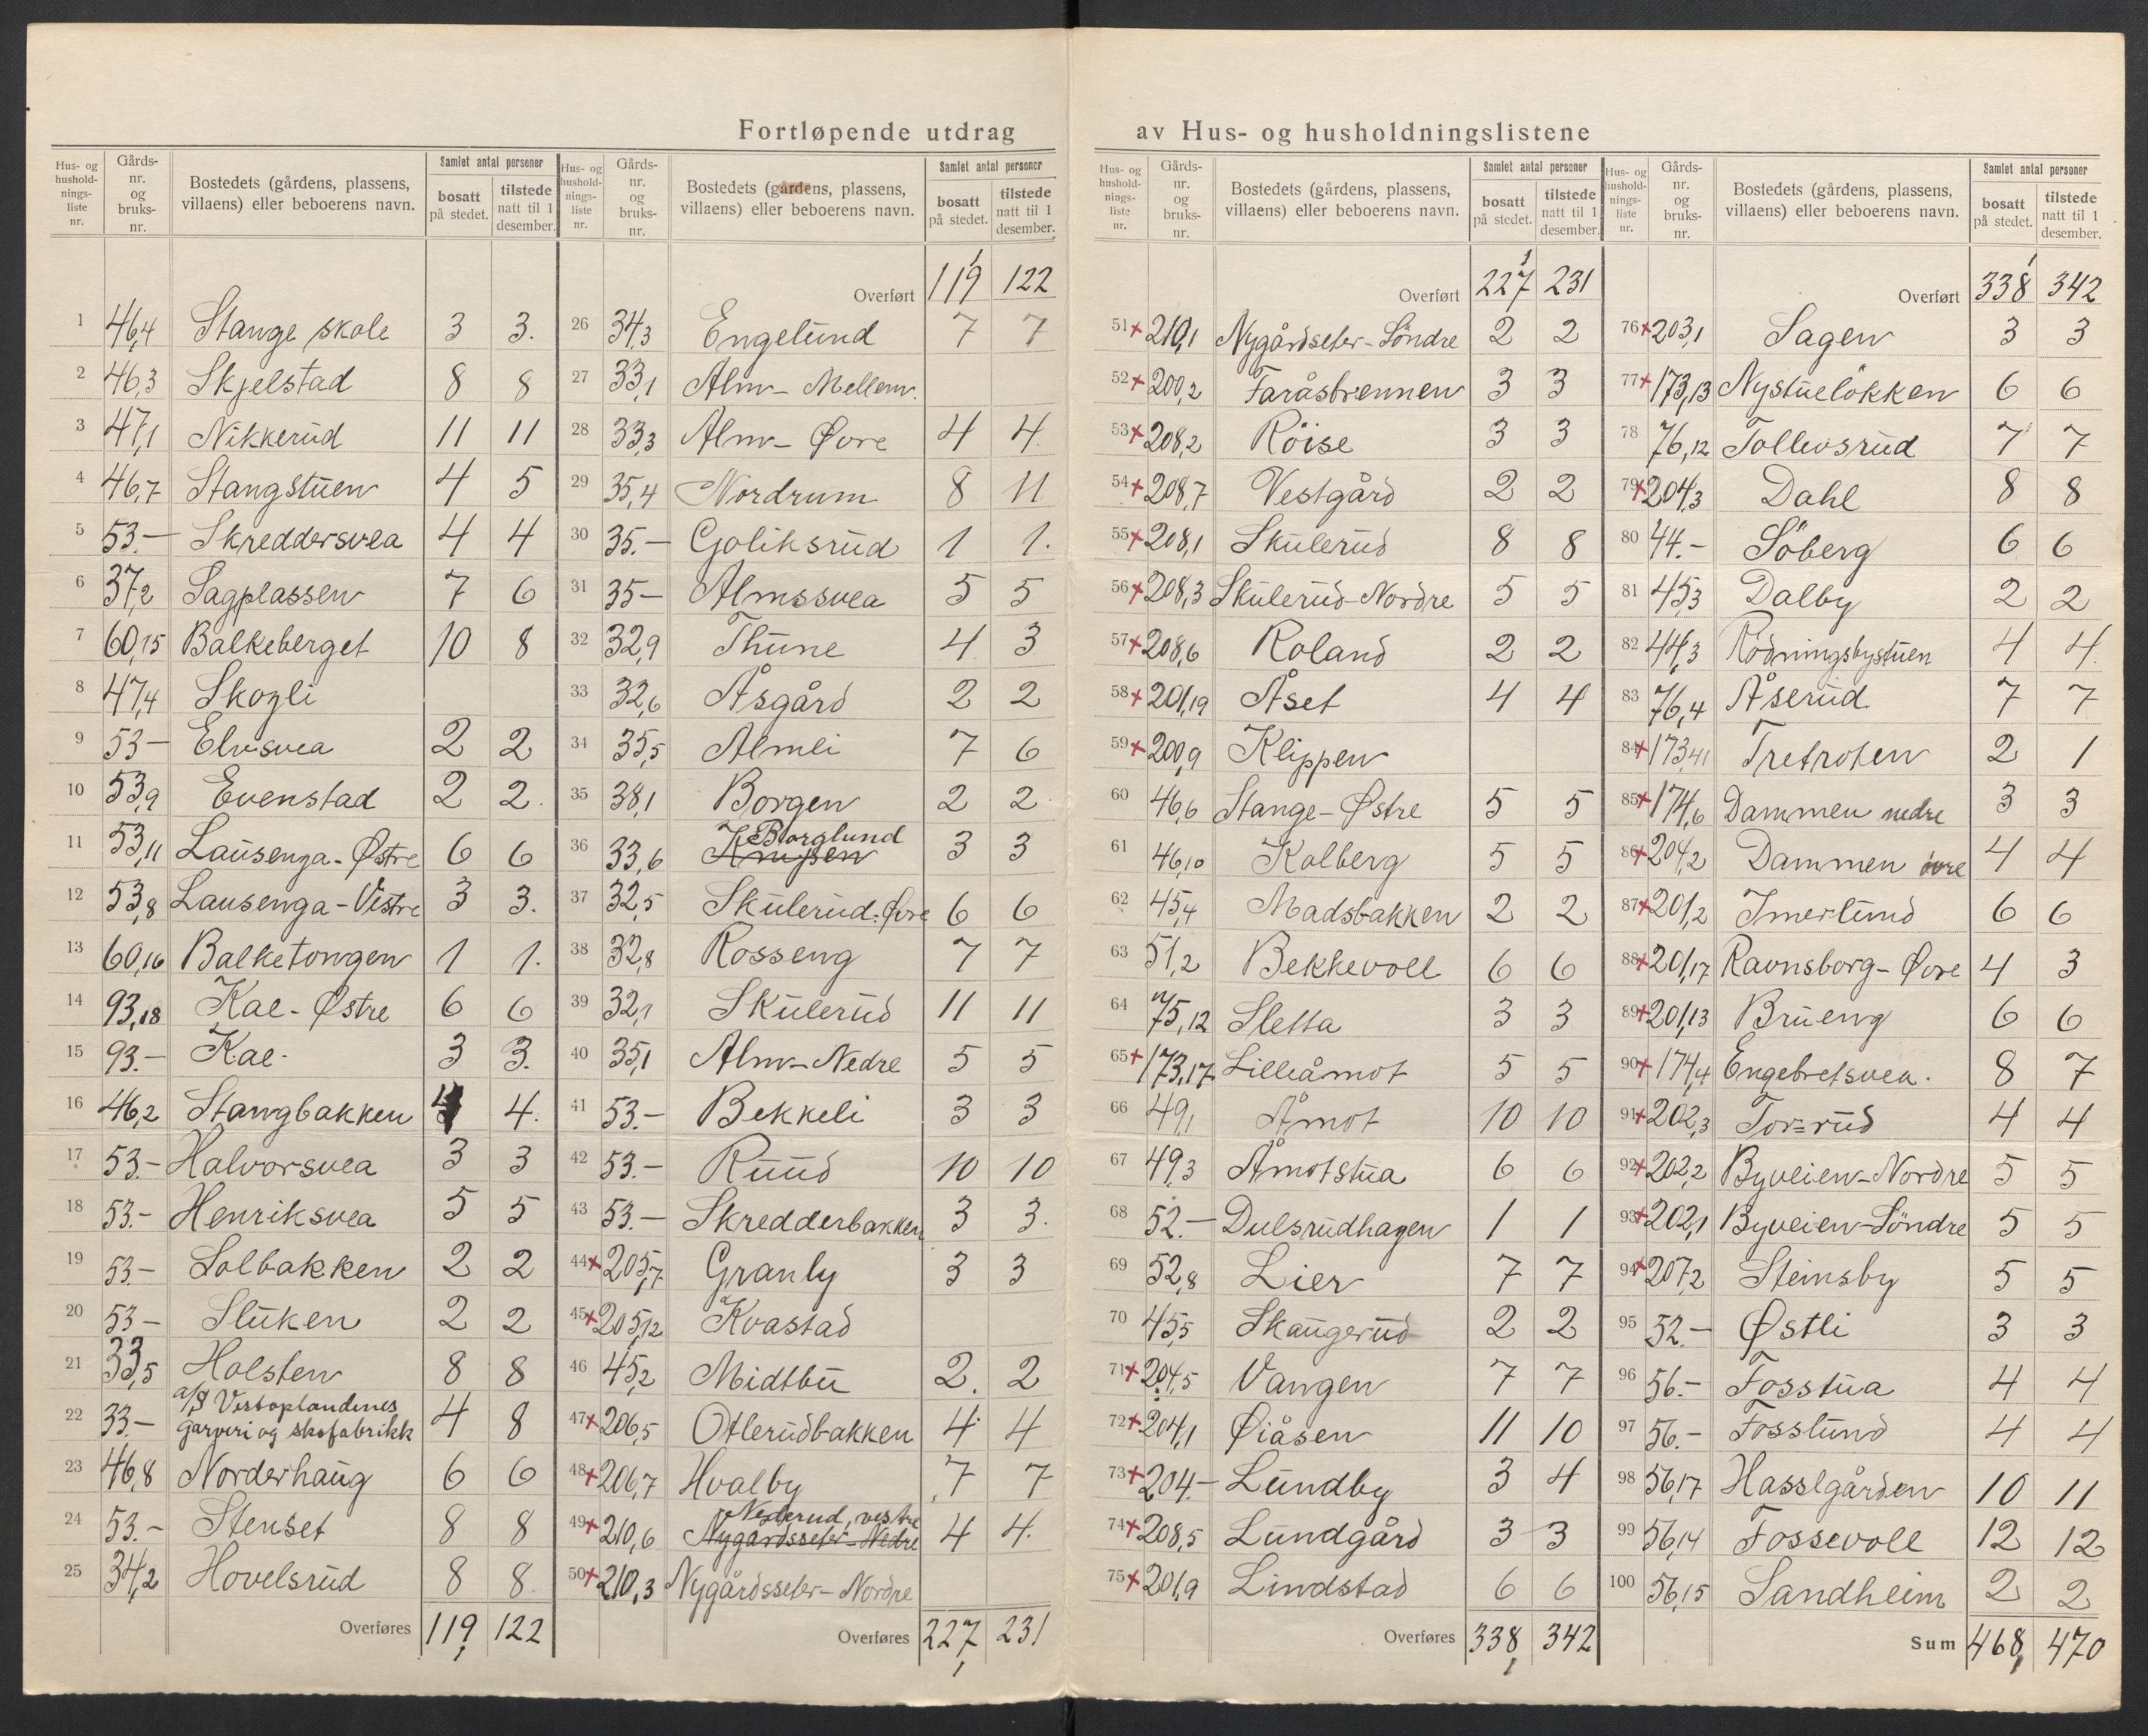 Fortløpende utdrag av Hus- og husholdningslistene
Hus- og hushold-nings-liste nr. | Gårds-nr. og bruks-nr. | Bostedets (gårdens, plassens, villaens) eller beboerens navn. | Samlet antal personer | bosatt på stedet. | tilstede natt til 1 desember.
1 46,4 Stange skole 3 3.
2 46,3 Skjelstad 8 8
3 47,1 Nikkerud 11 11
4 46,7 Stangstuen 4 5
5 53.— Skreddersvea 4 4
6 37,2 Sagplassen 7 6
7 60,15 Balkeberget 10 8
8 47,4 Skogli
9 53— Elvsvea 2 2
10 53,9 Evenstad 2 2.
11 53,11 Lausenga-Østre 6 6
12 53,8 Lausenga-Vestre 3 3.
13 60,16 Balketongen 1 1.
14 93,18 Kae-Østre 6 6
15 93.— Kae. 3 3.
16 46,2 Stangbakken 4 4.
17 53.— Halvorsvea 3 3
18 53.— Henriksvea 5 5
19 53.— Solbakken 2 2
20 53— Sluken 2 2
21 33,5 Holsten 8 8
22 33.— a/s Vestoplandenes garveri og skofabrikk 4 8
23 46,8 Norderhaug 6 6
24 53.— Stenset 8 8
25 34,2 Hovelsrud 8 8
Overføres 119 122
Hus- og hushold-nings-liste nr. | Gårds-nr. og bruks-nr. | Bostedets (gårdens, plassens, villaens) eller beboerens navn. | Samlet antal personer | bosatt på stedet. | tilstede natt til 1 desember.
Overført 119 122
26 34,3 Engelund 7 7
27 33,1 Alm-Mellem.
28 33,3 Alm-Øvre 4 4.
29 35,4 Nordrum 8 11
30 35.— Goliksrud 1 1.
31 35— Almssvea 5 5
32 32,9 Thune 4 3
33 32,6 Åsgård 2 2
34 35,5 Almli 7 6
35 38,1 Borgen 2 2
36 33,6 Borglund 3 3
37 32,5 Skulerud-Øvre 6 6
38 32,8 Rosseng 7 7
39 32,1 Skulerud 11 11
40 35,1 Alm-Nedre 5 5
41 53.— Bekkeli 3 3
42 53.— Ruud 10 10
43 53.— Skredderbakken 3 3.
44 x 205,7 Granly 3 3
45 x 205,12 Kvastad
46 45,2 Midtbu 2. 2
47 x 206,5 Otlerudbakken 4 4
48 x 206,7 Hvalby 7 7
49 x 210,6 Nesterud, vestre Nygårdsseter-Nedre 4 4.
50 x 210,3 Nygårdsseter-Nordre
Overføres 227 231
Hus- og hushold-nings-liste nr. | Gårds-nr. og bruks-nr. | Bostedets (gårdens, plassens, villaens) eller beboerens navn. | Samlet antal personer | bosatt på stedet. | tilstede natt til 1 desember.
Overført 227 231
51 x 210,1 Nygårdseter-Söndre 2 2
52 x 200,2 Faråsbrennen 3 3
53 x 208,2 Röise 3 3
54 x 208,7 Vestgård 2 2
55 x 208,1 Skulerud 8 8
56 x 208,3 Skulerud-Nordre 5 5
57 x 208,6 Roland 2 2
58 x 201,19 Åset 4 4
59 x 200,9 Klippen
60 46,6 Stange-Østre 5 5
61 46,10 Kolberg 5 5
62 45,4 Madsbakken 2 2
63 51,2 Bekkevoll 6 6
64 75,12 Sletta 3 3
65 x 173,17 Lilleåmot 5 5
66 49,1 Åmot 10 10
67 49,3 Åmotstua 6 6
68 52.— Dulsrudhagen 1 1
69 52,8 Lier 7 7
70 45,5 Skaugerud 2 2
71 x 204,5 Vangen 7 7
72 x 204,1 Øiåsen 11 10
73 x 204.— Lundby 3 4
74 x 208,5 Lundgård 3 3
75 x 201,9 Lindstad 6 6
Overføres 338 342
Hus- og hushold-nings-liste nr. | Gårds-nr. og bruks-nr. | Bostedets (gårdens, plassens, villaens) eller beboerens navn. | Samlet antal personer | bosatt på stedet. | tilstede natt til 1 desember.
Overført 338 342
76 x 203,1 Sagen 3 3
77 x 173,13 Nystuelökken 6 6
78 76,12 Tollevsrud 7 7
79 x 204,3 Dahl 8 8
80 44.— Söberg 6 6
81 45,3 Dalby 2 2
82 44,3 Rödningsbystuen 4 4.
83 76,4 Åserud 7 7
84 x 173,41 Tretroten 2 1
85 x 174,6 Dammen nedre 3 3
86 x 204,2 Dammen övre 4 4
87 x 201,2 Imerlund 6 6
88 x 201,17 Ravnsborg-Øvre 4 3
89 x 201,13 Brueng 6 6
90 x 174,4 Engebretsvea. 8 7
91 x 202,3 Tor=rud 4 4
92 x 202,2 Byveien-Nordre 5 5
93 x 202,1 Byveien-Söndre 5 5
94 x 207,2 Steinsby 5 5
95 52.— Østli 3 3
96 56.— Fosstua 4 4
97 56.— Fosslund 4 4
98 56,17 Hasselgården 10 11
99 56,14 Fossevoll 12 12
100 56,15 Sandheim 2 2
Sum 468 470